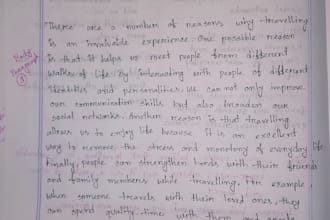 There are a number of reasons why travelling
is an invaluable experience. One possible reason
is that it helps us meet people from different
walks of life. By interacting with people of different
identities and personalities, we can not only improve
our communication skills but also broaden our
social networks. Another reason is that travelling
allows us to enjoy life because it is an excellent
way to remove the stress and monotony of everyday life.
Finally, people can strengthen bonds with their friends
and family members while travelling. For example,
when someone travels with their loved ones, they
can spend quality time with them and
Body
Paragraph
1